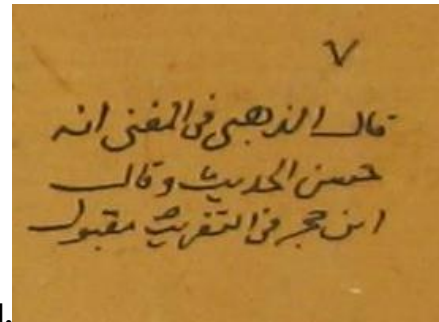 ٧
قال الذهبي في المغني انه
حسن الحديث وقال
ابن حجر في التقريب مقبول